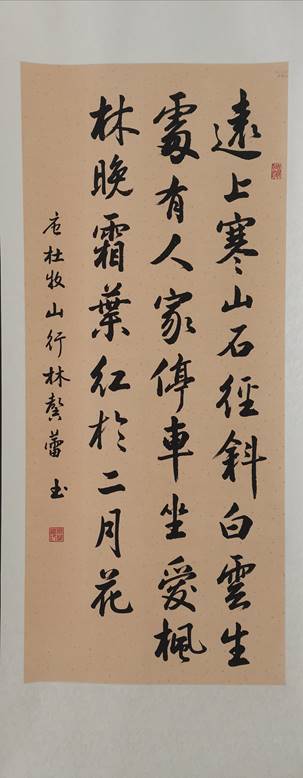 遠上寒山石徑斜白雲生
處有人家停車坐愛楓
林晚霜葉紅於二月花
唐杜牧山行林馨蕾书